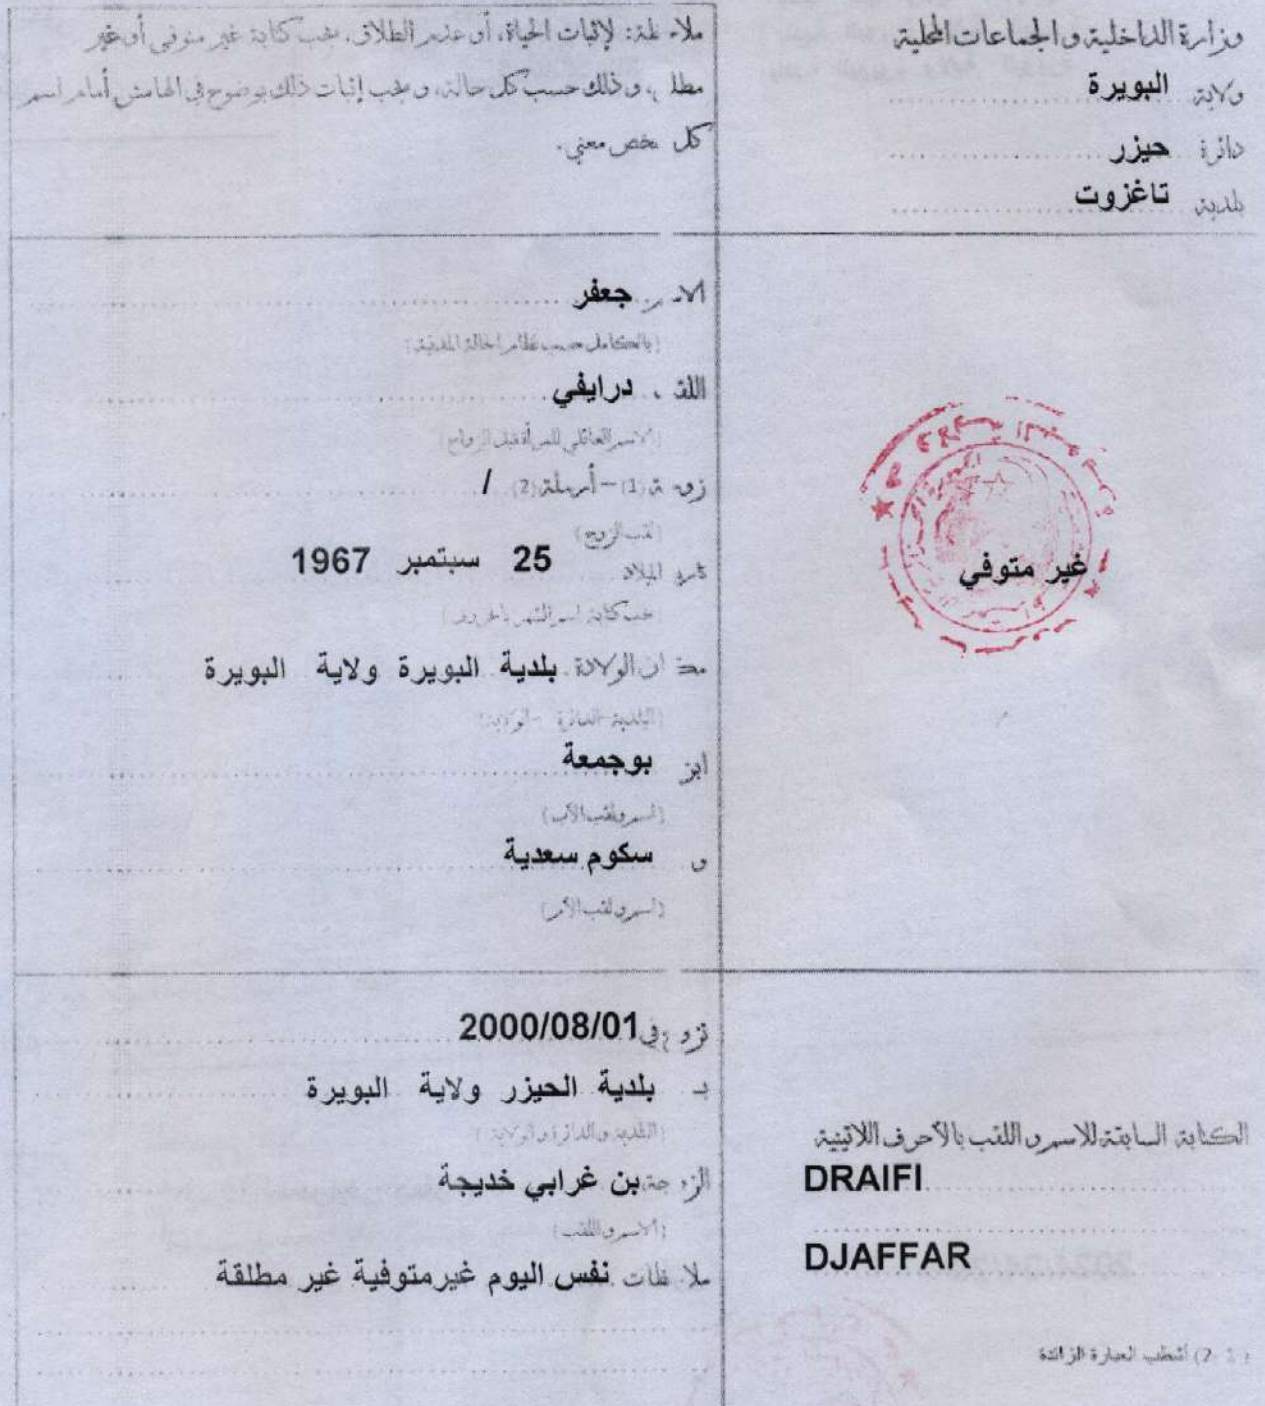 وزارة الداخلية و الجماعات المحلية
ولاية البويرة
دائرة حيزر
بلدية تاغزوت
ملاحظة: لإثبات الحياة، أو عدم الطلاق، يجب كتابة غير متوفى أو غير
و ذلك حسب كل حالة، و يجب إثبات ذلك بوضوح في الهامش أمام اسم
كل شخص معني.
جعفر
(بالكامل حسب نظام الحالة المدنية)
درايفي
(الاسم العائلي للمرأة قبل الزواج)
زوجة (1) – أرملة (2) /
(لقب الزوج)
تاريخ الميلاد 25 سبتمبر 1967
(يجب كتابة اسم الشهر بالحروف)
مكان الولادة بلدية البويرة ولاية البويرة
(البلدية - الدائرة - الولاية)
ابن بوجمعة
(اسم ولقب الأب)
و سكوم سعدية
(اسم ولقب الأم)
غير متوفي
تزوج في 2000/08/01
بـ بلدية الحيزر ولاية البويرة
(البلدية و الدائرة و الولاية)
الزوجة بن غرابي خديجة
(الاسم و اللقب)
ملاحظات نفس اليوم غيرمتوفية غير مطلقة
الكتابة السابقة للاسم و اللقب بالأحرف اللاتينية
DRAIFI
DJAFFAR
(1-2) أشطب العبارة الزائدة